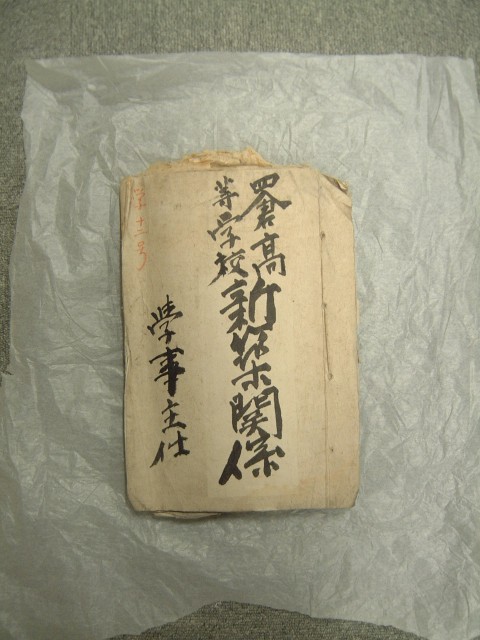 四倉高
等学校
新築関係
学事主任